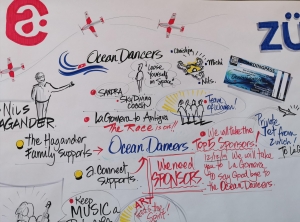 a:
ZÜ
Ocean Dancers
Claudia
"Loose
Yourself
in
Space"
• SANDRA
• Skydiving
COACH
• Nils
NILS
HAGANDER
• La Gomera to Antigua
The RACE is on!!
Team
of
Women
• the Hagander
Family Supports →
Ocean Dancers
We will take the
Top 3 Sponsors!
We will take
you to La Gomera,
To Say Good bye to
the Ocean Dancers
Private
Jet
from
Zürich
To LA
• a:connect
Supports
We need
SPONSORS
• Keep
MUSIC a
ART